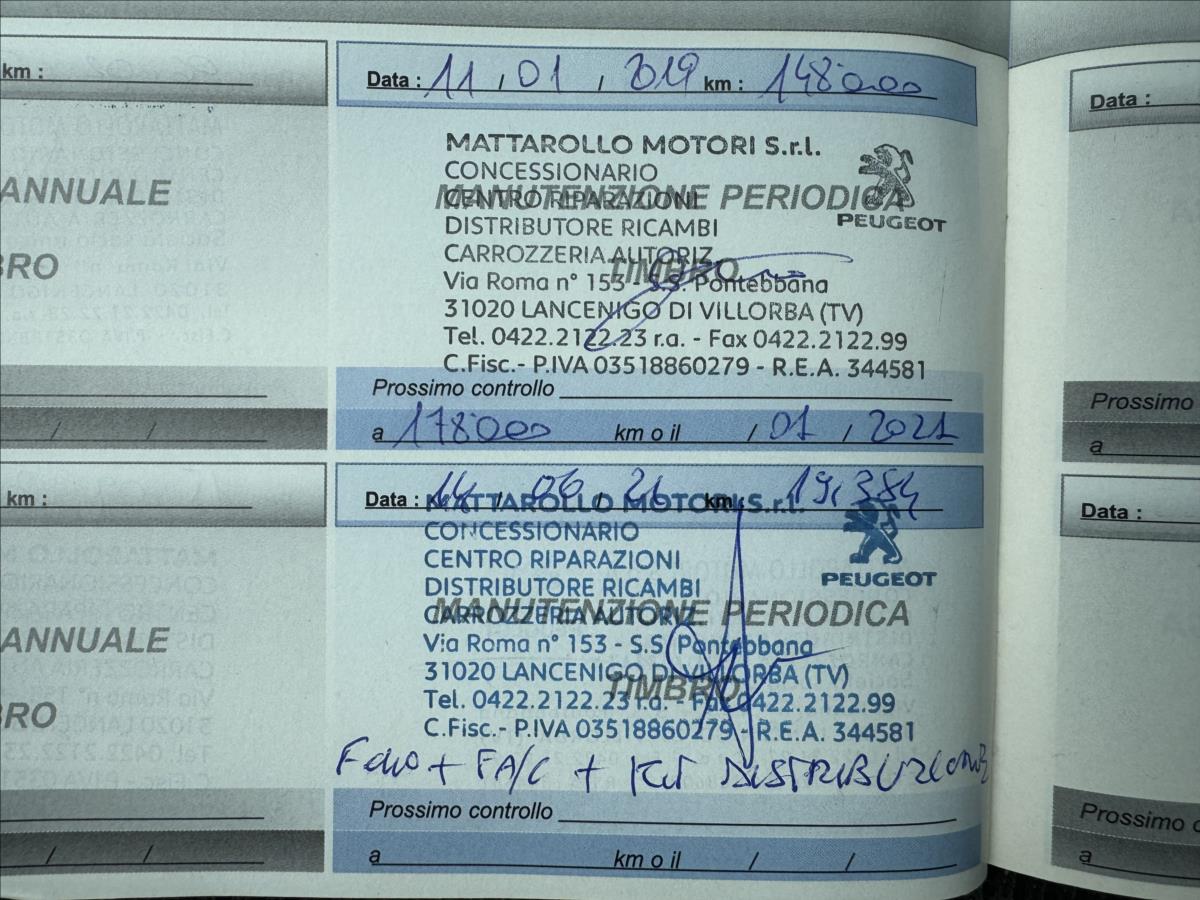 km :
ANNUALE
BRO
/ /
Data : 11 / 01 / 2019 km : 148000
MATTAROLLO MOTORI S.r.l.
CONCESSIONARIO
CENTRO RIPARAZIONI
MANUTENZIONE PERIODICA
PEUGEOT
DISTRIBUTORE RICAMBI
CARROZZERIA AUTORIZ.
TIMBRO
Via Roma n° 153 - S.S. Pontebbana
31020 LANCENIGO DI VILLORBA (TV)
Tel. 0422.2122.23 r.a. - Fax 0422.2122.99
C.Fisc.- P.IVA 03518860279 - R.E.A. 344581
Prossimo controllo
a 178000 km o il / 01 / 2021
Data :
Prossimo
a
km :
ANNUALE
BRO
/ /
Data : 14 / 06 / 21 km : 19,384
MATTAROLLO MOTORI S.r.l.
CONCESSIONARIO
CENTRO RIPARAZIONI
PEUGEOT
DISTRIBUTORE RICAMBI
CARROZZERIA AUTORIZ.
MANUTENZIONE PERIODICA
Via Roma n° 153 - S.S. Pontebbana
31020 LANCENIGO DI VILLORBA (TV)
TIMBRO
Tel. 0422.2122.23 r.a. - Fax 0422.2122.99
C.Fisc.- P.IVA 03518860279 - R.E.A. 344581
+ FA/C + KIT DISTRIBUZIONE
Prossimo controllo
a km o il / /
Data :
Prossimo c
a